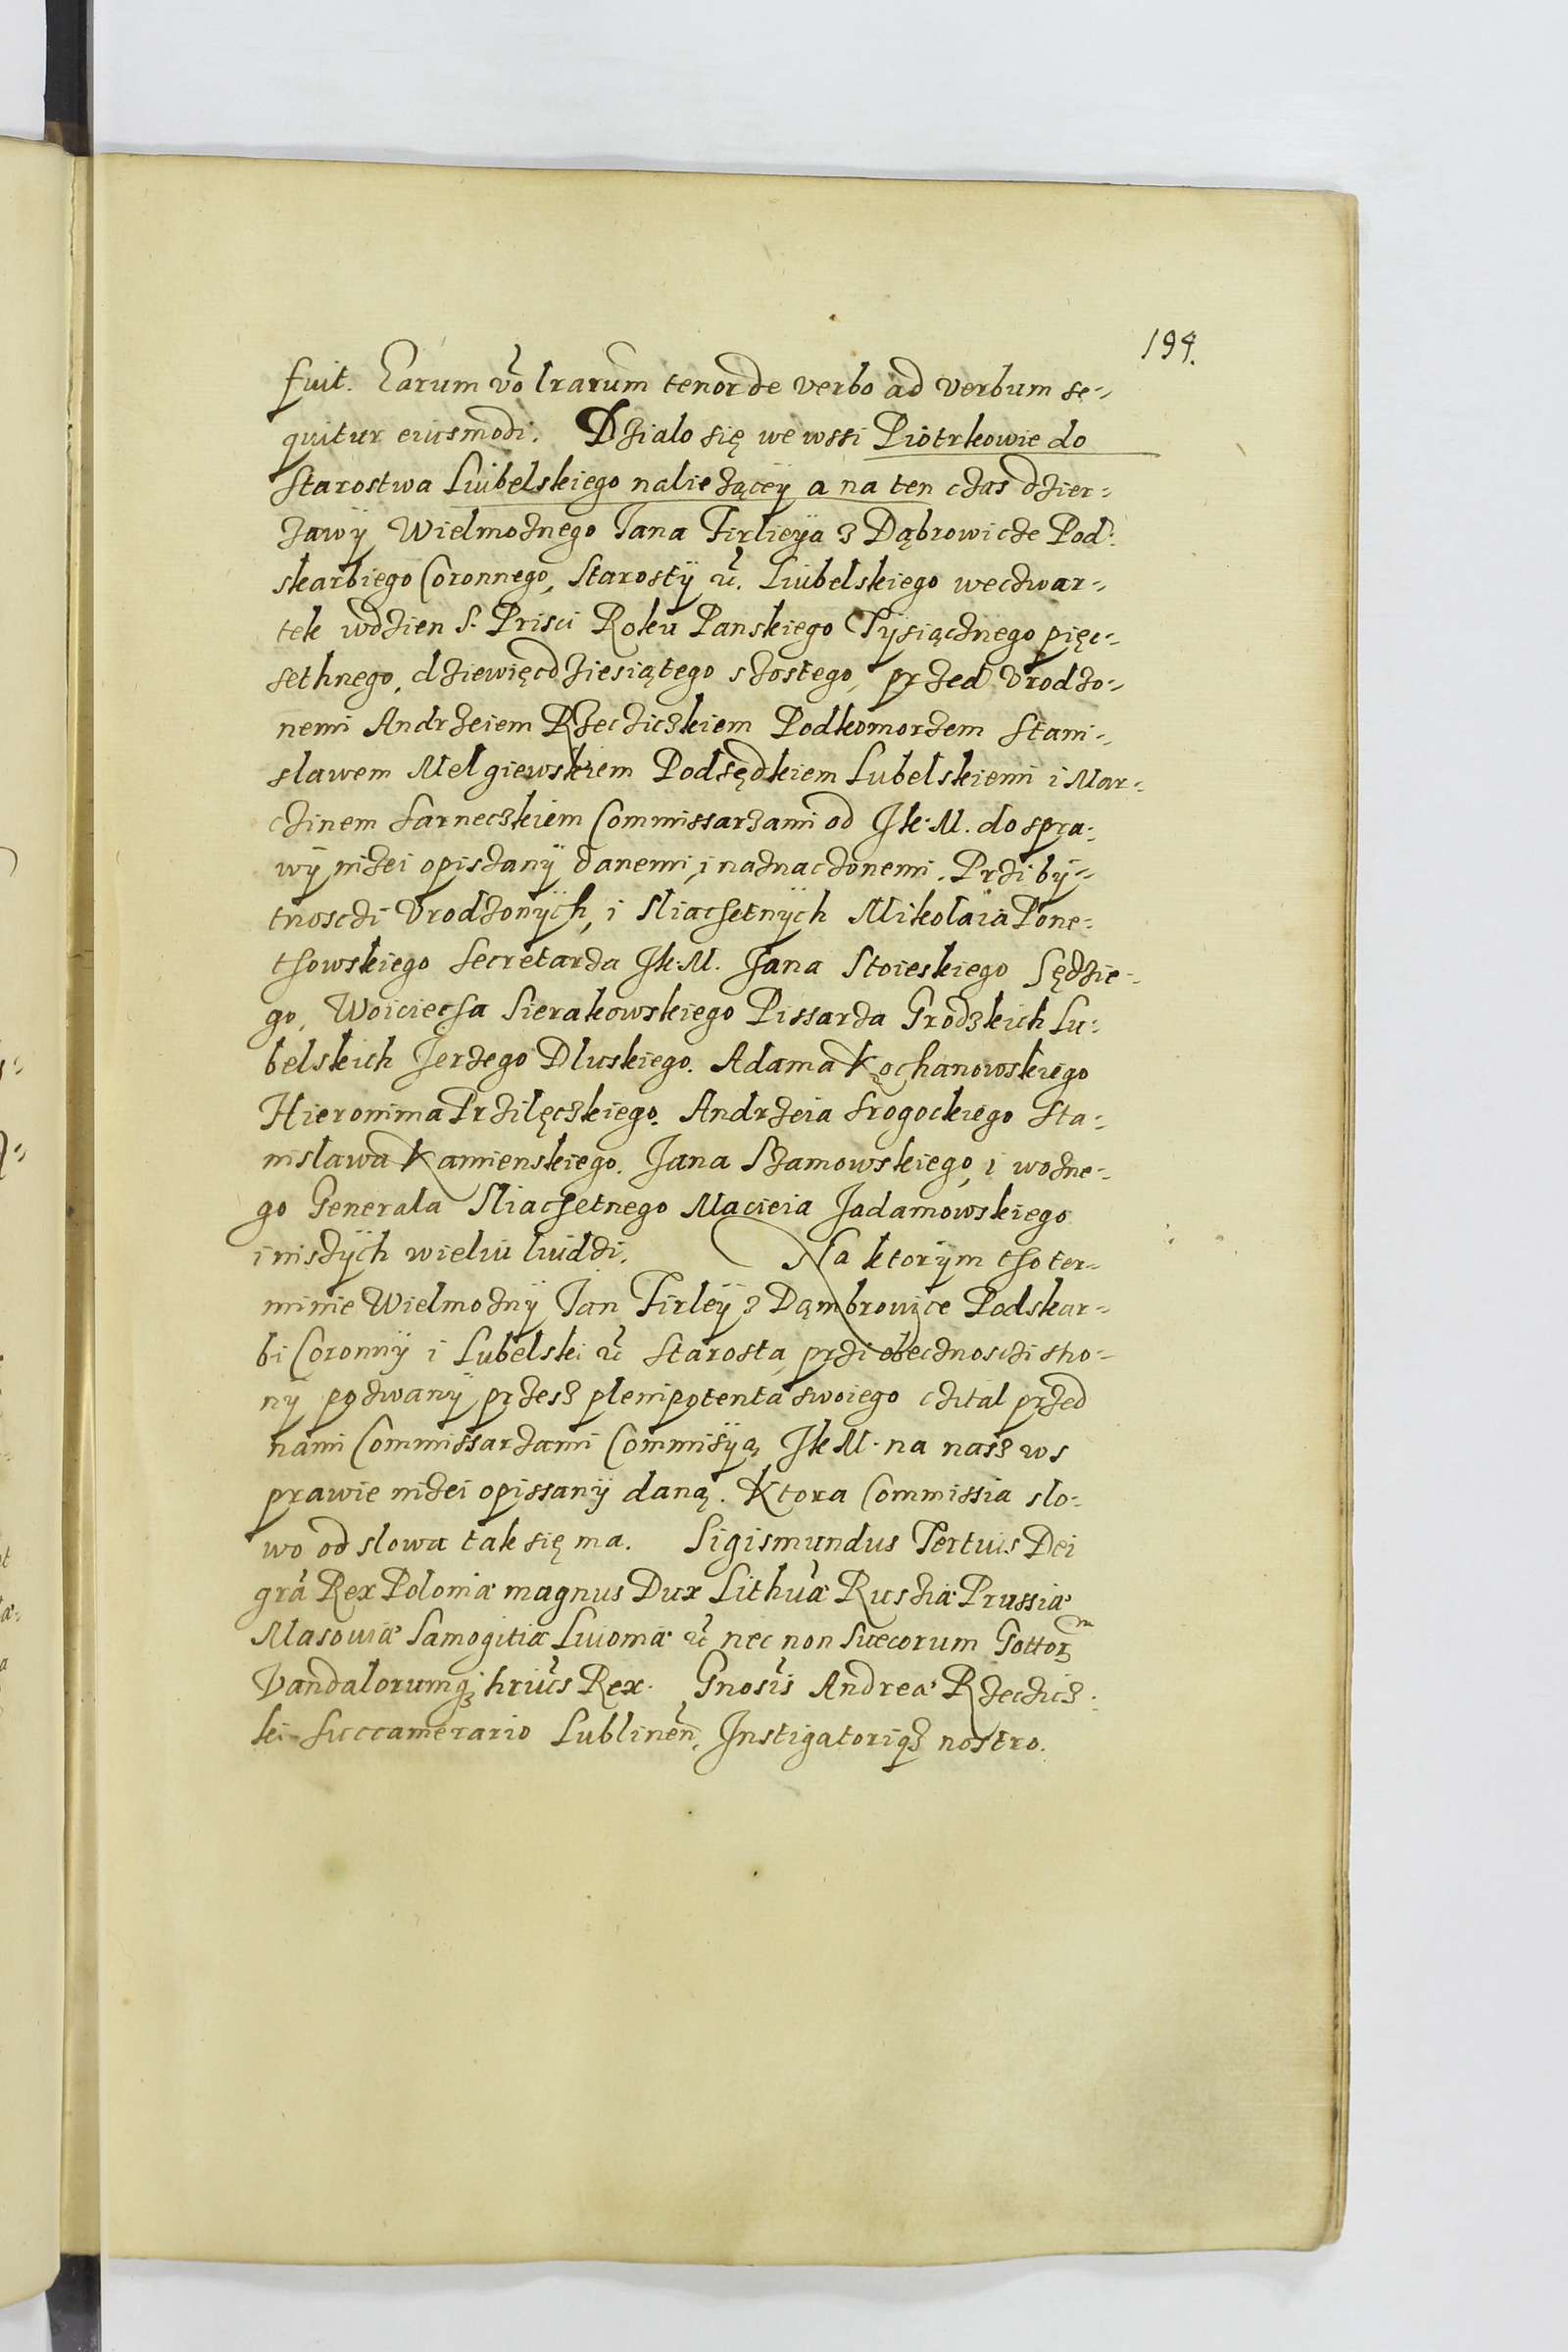 194.
fuit. Earum vo lrarum tenor de verbo ad verbum se-
quitur eiusmodi. Dzialo się we wssi Piotrkowie do
Starostwa Liubelskiego nalieżącÿ a na ten czas dzier-
zawÿ Wielmożnego Jana Firlieÿa z Dąbrowicze Pod-
skarbiego Coronnego, Starostÿ etc. Liubelskiego weczwar-
tek wdzien S. Prisci Roku Panskiego Tÿsiącznego pięc-
sethnego, dziewięcdziesiątego szostego, przed Vrodzo-
nemi Andrzeiem Rzeczickiem Podkomorzem Stani-
slawem Melgiewskiem Podsędkiem Lubelskiemi i Mar-
czinem Sarneczkiem Commissarzami od Jk. M. do spra-
wÿ niżei opiszanÿ danemi, i naznaczonemi. Przi bÿ-
tnosczi Vrodzonÿch, i Sliachetnÿch Mikolaia Pone-
thowskiego Secretarza Jk. M. Jana Stoieskiego Sędzie-
go, Woiciecha Sierakowskiego Pissarza Grodzkich Lu-
belskich Jerzego Dluskiego. Adama Kochanowskiego
Hieronima Przilęczkiego. Andrzeia Srogockiego Sta-
nislawa Kamienskiego. Jana Szamowskiego, i wozne-
go Generala Sliachetnego Macieia Jadamowskiego
i niszÿch wieliu liudzi. Na ktorÿm tho ter-
minie Wielmoznÿ Jan Firleÿ z Dąmbrowice Podskar-
bi Coronnÿ i Lubelski etc Starosta przi obecznosczi stro-
nÿ pozwanÿ przesz plenipotenta swoiego czital przed
nami Commissarzami Commisÿą Jk M. na nasz w s
prawie niżei opissanÿ daną. Ktora Commissia slo-
wo od slowa tak się ma. Sigismundus Tertius Dei
gra Rex Poloniæ magnus Dux Lithuæ Russiæ Prussiæ
Masoviæ Samogitiæ Livoniæ etc nec non Suecorum Gottorm
Vandalorumq hrius Rex. Gnosis Andreæ Rzeczicz-
ki Succamerario Lublinen, Instigatoriq nostro.